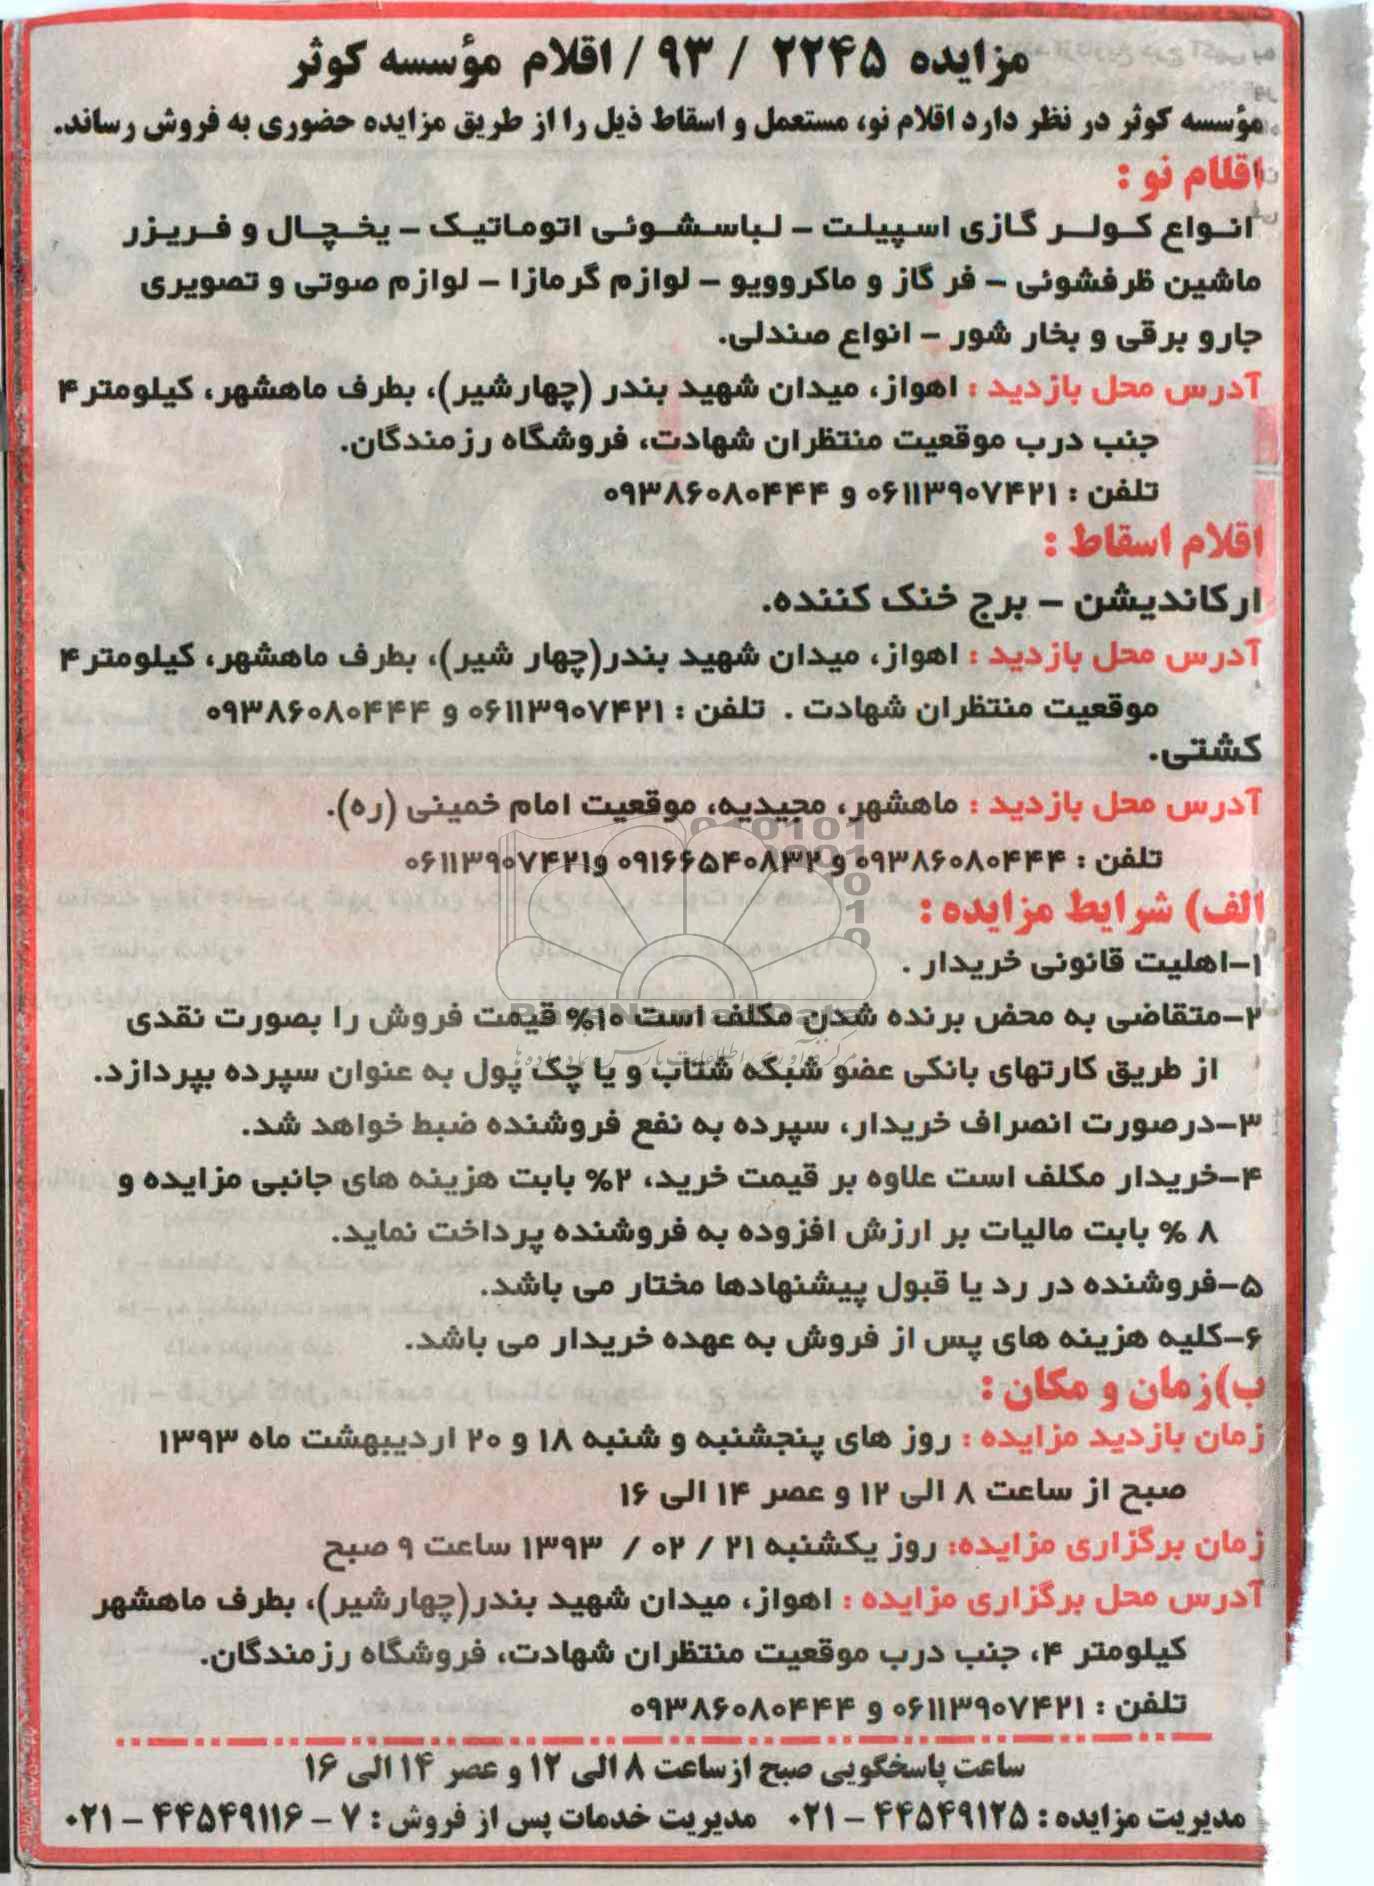 مزایده ۲۲۴۵ / ۹۳ / اقلام مؤسسه کوثر
مؤسسه کوثر در نظر دارد اقلام نو، مستعمل و اسقاط ذیل را از طریق مزایده حضوری به فروش رساند.
اقلام نو :
انواع کولر گازی اسپیلت - لباسشوئی اتوماتیک - یخچال و فریزر
ماشین ظرفشوئی - فر گاز و ماکروویو - لوازم گرمازا - لوازم صوتی و تصویری
جارو برقی و بخار شور - انواع صندلی.
آدرس محل بازدید : اهواز، میدان شهید بندر (چهارشیر)، بطرف ماهشهر، کیلومتر ۴
جنب درب موقعیت منتظران شهادت، فروشگاه رزمندگان.
تلفن : ۰۶۱۱۳۹۰۷۴۲۱ و ۰۹۳۸۶۰۸۰۴۴۴
اقلام اسقاط :
ارکاندیشن - برج خنک کننده.
آدرس محل بازدید : اهواز، میدان شهید بندر(چهار شیر)، بطرف ماهشهر، کیلومتر ۴
موقعیت منتظران شهادت . تلفن : ۰۶۱۱۳۹۰۷۴۲۱ و ۰۹۳۸۶۰۸۰۴۴۴
کشتی.
آدرس محل بازدید : ماهشهر، مجیدیه، موقعیت امام خمینی (ره).
تلفن : ۰۹۳۸۶۰۸۰۴۴۴ و ۰۹۱۶۶۵۴۰۸۳۲ و۰۶۱۱۳۹۰۷۴۲۱
الف) شرایط مزایده :
۱-اهلیت قانونی خریدار .
۲-متقاضی به محض برنده شدن مکلف است ۱۰% قیمت فروش را بصورت نقدی
از طریق کارتهای بانکی عضو شبکه شتاب و یا چک پول به عنوان سپرده بپردازد.
۳-درصورت انصراف خریدار، سپرده به نفع فروشنده ضبط خواهد شد.
۴-خریدار مکلف است علاوه بر قیمت خرید، ۲% بابت هزینه های جانبی مزایده و
۸ % بابت مالیات بر ارزش افزوده به فروشنده پرداخت نماید.
۵-فروشنده در رد یا قبول پیشنهادها مختار می باشد.
۶-کلیه هزینه های پس از فروش به عهده خریدار می باشد.
ب)زمان و مکان :
زمان بازدید مزایده : روز های پنجشنبه و شنبه ۱۸ و ۲۰ اردیبهشت ماه ۱۳۹۳
صبح از ساعت ۸ الی ۱۲ و عصر ۱۴ الی ۱۶
زمان برگزاری مزایده: روز یکشنبه ۲۱ / ۰۲ / ۱۳۹۳ ساعت ۹ صبح
آدرس محل برگزاری مزایده : اهواز، میدان شهید بندر(چهارشیر)، بطرف ماهشهر
کیلومتر ۴، جنب درب موقعیت منتظران شهادت، فروشگاه رزمندگان.
تلفن : ۰۶۱۱۳۹۰۷۴۲۱ و ۰۹۳۸۶۰۸۰۴۴۴
ساعت پاسخگویی صبح ازساعت ۸ الی ۱۲ و عصر ۱۴ الی ۱۶
مدیریت مزایده : ۴۴۵۴۹۱۲۵ - ۰۲۱ مدیریت خدمات پس از فروش : ۷ - ۴۴۵۴۹۱۱۶ - ۰۲۱